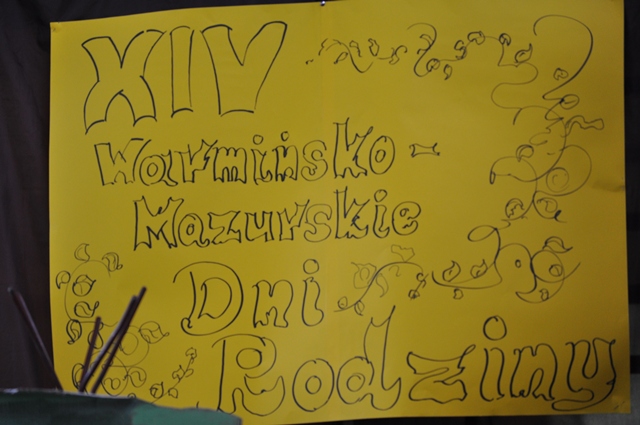 XIV
Warmińsko-
Mazurskie
Dni
Rodziny